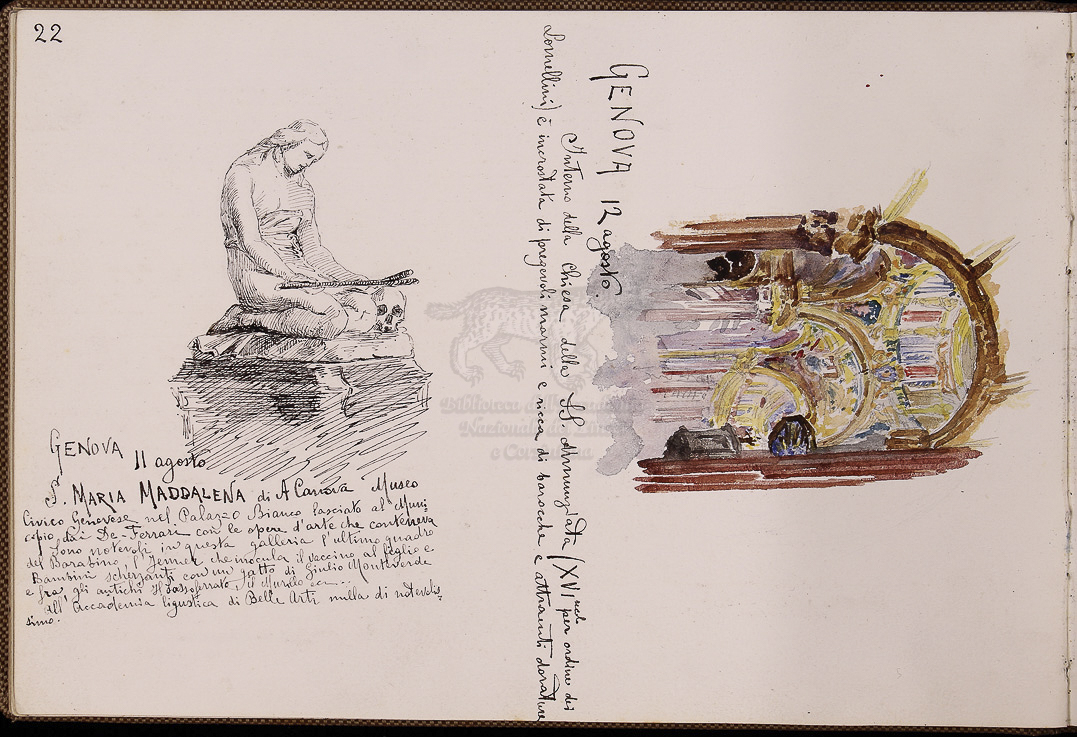 22
GENOVA 11 agosto
S. MARIA MADDALENA di A Canova Museo
Civico Genovese nel Palazzo Bianco lasciato al Muni=
cipio dai De-Ferrari con le opere d'arte che conteneva
Sono notevoli in questa galleria l'ultimo quadro
del Barabino, l'Jenner che inocula il vaccino al figlio e
Bambini scherzanti con un gatto di Giulio Monteverde
e fra gli antichi il Sassoferrato, il
all'Accademia ligustica di Belle Arti nulla di notevolis=
simo.
GENOVA 12 agosto.
Interno della Chiesa della SS. Annunziata (XVI per ordine dei
Lomellini) è incrostata di pregevoli marmi e ricca di barocche e attraenti dorature
Biblioteca dell'Accademia
Nazionale dei Lincei
e Corsiniana